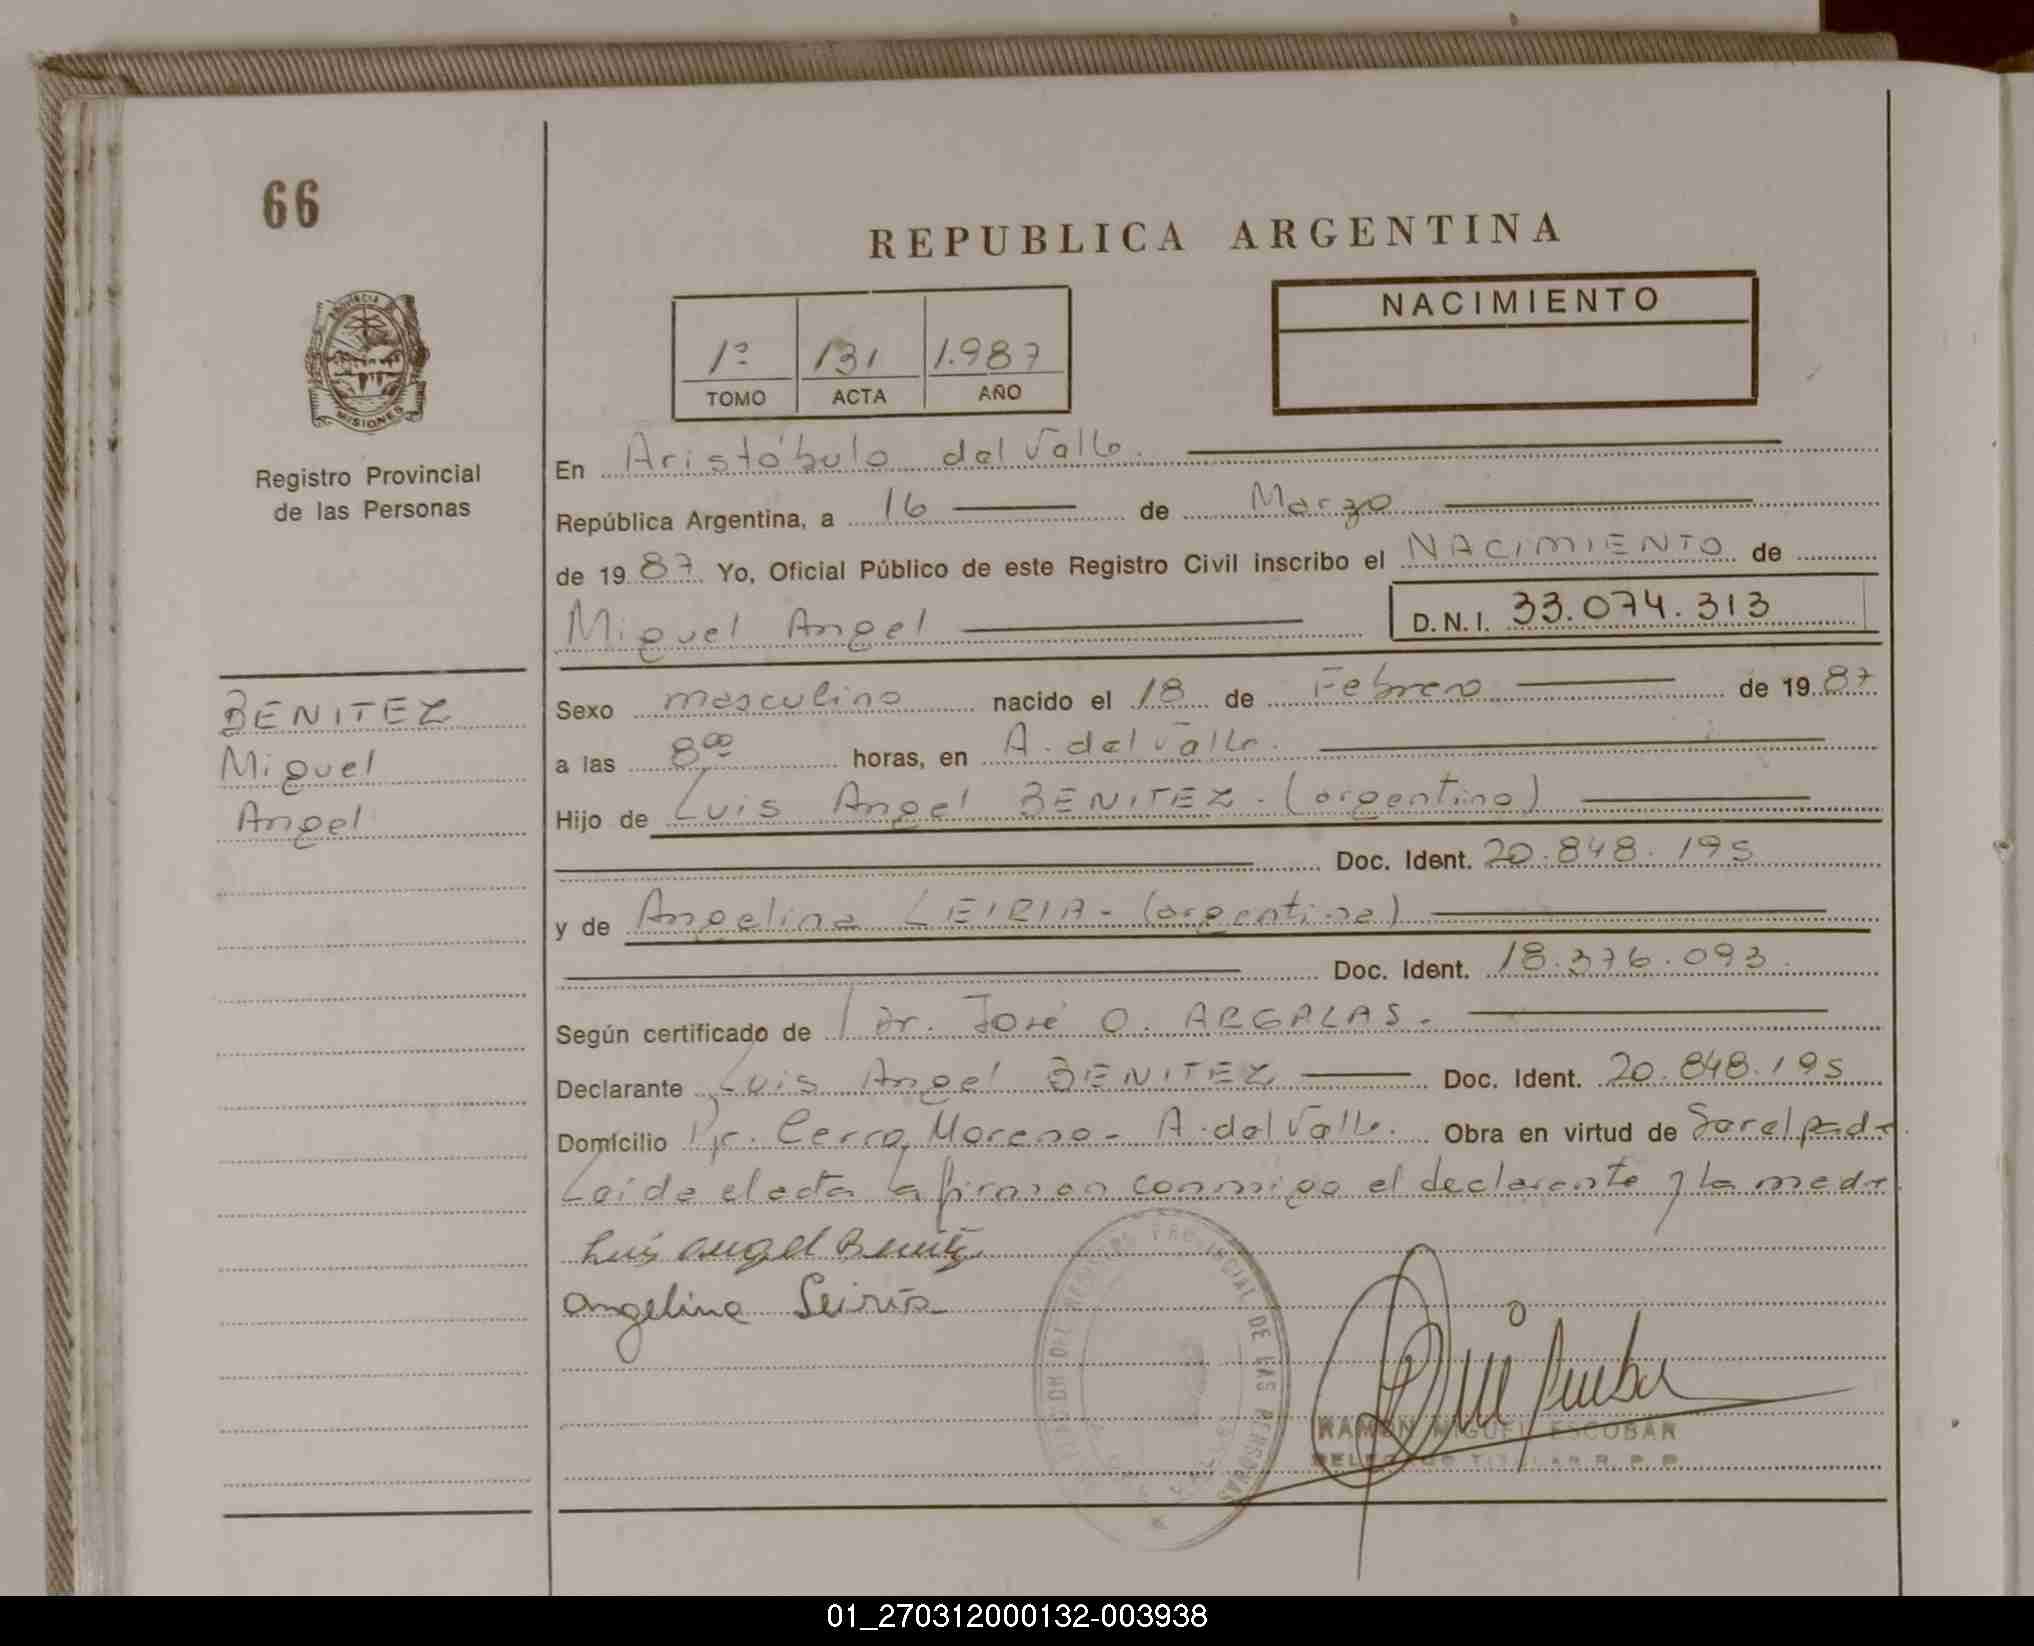 66
REPUBLICA ARGENTINA
NACIMIENTO
1º 131 1.987
TOMO ACTA AÑO
PROVINCIA DE
MISIONES
Registro Provincial
de las Personas
En Aristóbulo del Valle.
República Argentina, a 16 de Marzo
de 1987 Yo, Oficial Público de este Registro Civil inscribo el NACIMIENTO de
Miguel Angel D.N.I. 33.074.313
BENITEZ
Miguel
Angel
Sexo masculino nacido el 18 de Febrero de 1987
a las 8 00 horas, en A. del Valle.
Hijo de Luis Angel BENITEZ - (argentino)
Doc. Ident. 20.848.195
y de Angelina LEIRIA - (argentina)
Doc. Ident. 18.376.093.
Según certificado de Dr. José O. ARGALAS.
Declarante Luis Angel BENITEZ Doc. Ident. 20.848.195
Domicilio Pje. Cerro Moreno - A. del Valle. Obra en virtud de Ser el padre.
Leida el acta la firman conmigo el declarante y la madre.
Luis angel Benitez
angelina Leiria
REGISTRO PROVINCIAL DE LAS PERSONAS
RAMON MIGUEL ESCOBAR
DELEGADO TITULAR R. P. P.
01_270312000132-003938